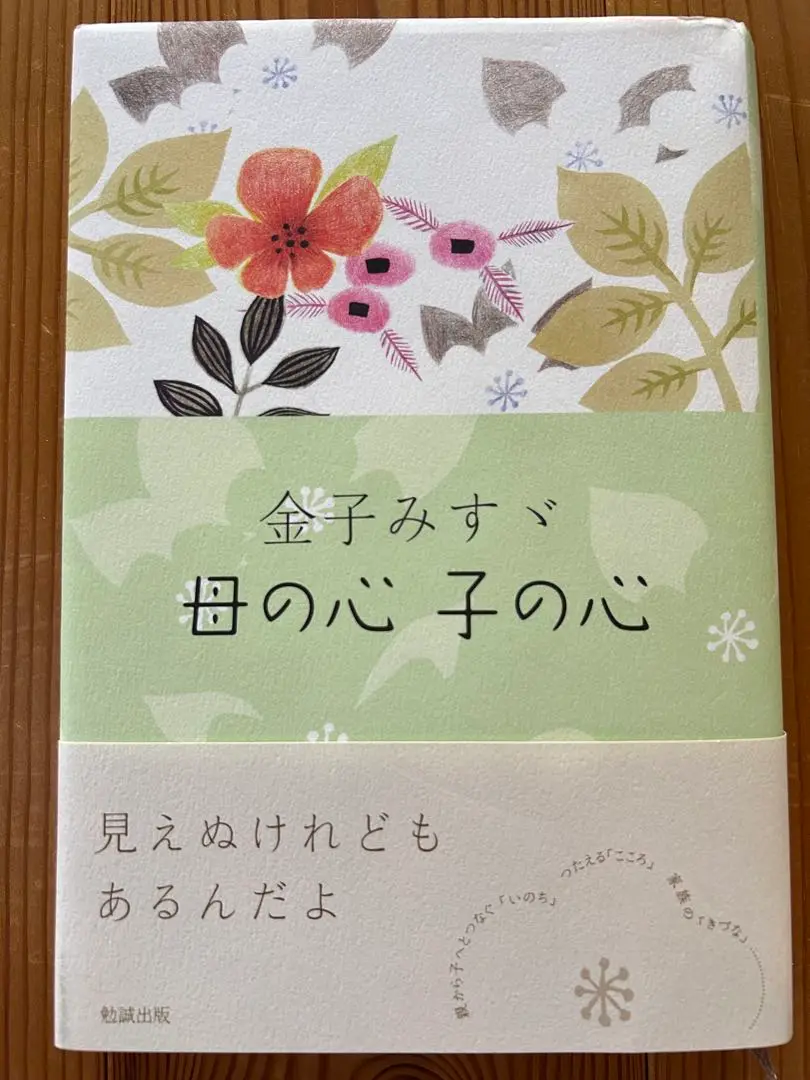 金子みすゞ
母の心 子の心
見えぬけれども
あるんだよ
親から子へとつなぐ「いのち」
つたえる「こころ」
家族の「きづな」
勉誠出版